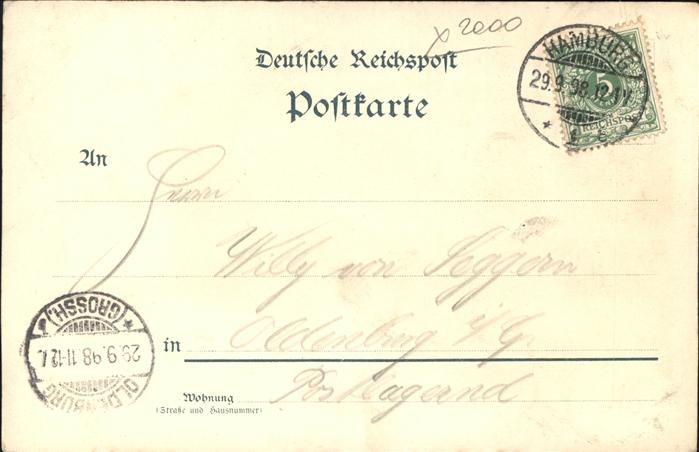 x 2000
Deutsche Reichspost
Postkarte
HAMBURG
29.9.98.
5
REICHSPOST
An
Herrn
Willy von Seggern
in Oldenburg i/Gr.
Postlagernd
Wohnung
(Straße und Hausnummer)
OLDENBURG
29.9.98 11-12
(GROSSH.)